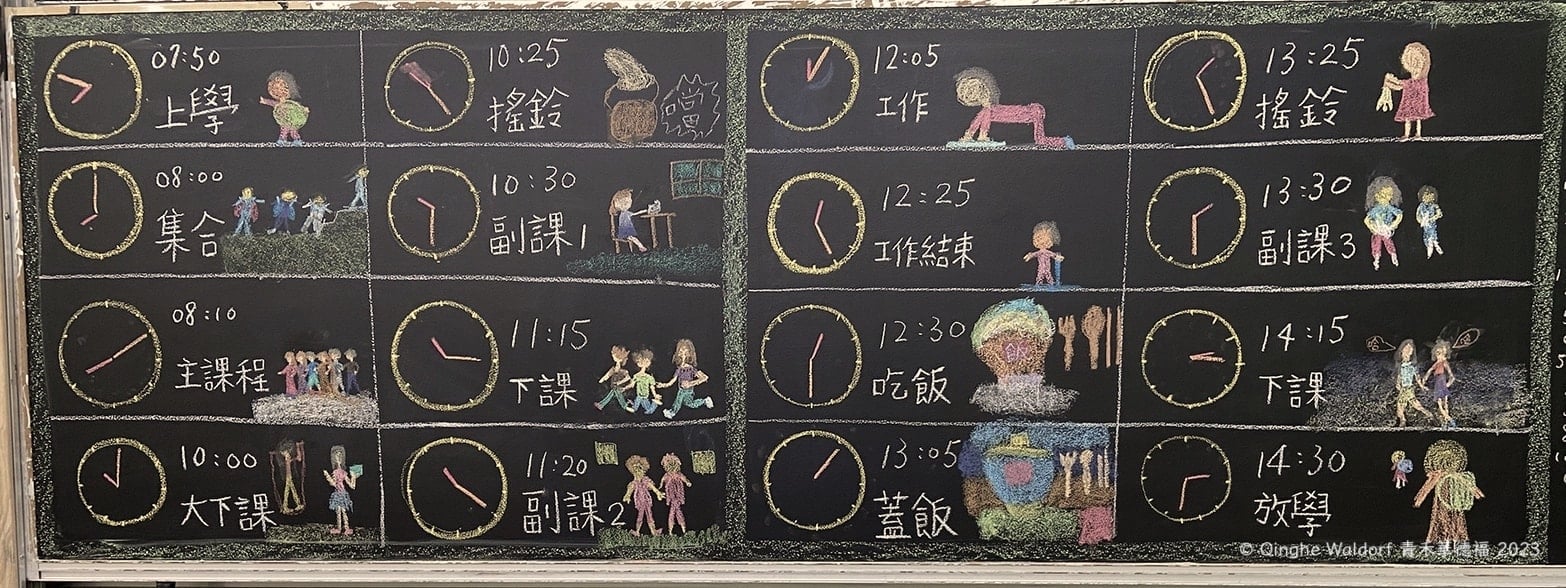 07:50
上學
08:00
集合
08:10
主課程
10:00
大下課
10:25
搖鈴
噹
10:30
副課1
11:15
下課
11:20
副課2
12:05
工作
12:25
工作結束
12:30
吃飯
飯
13:05
蓋飯
13:25
搖鈴
13:30
副課3
14:15
下課
14:30
放學
© Qinghe Waldorf 青禾華德福 2023